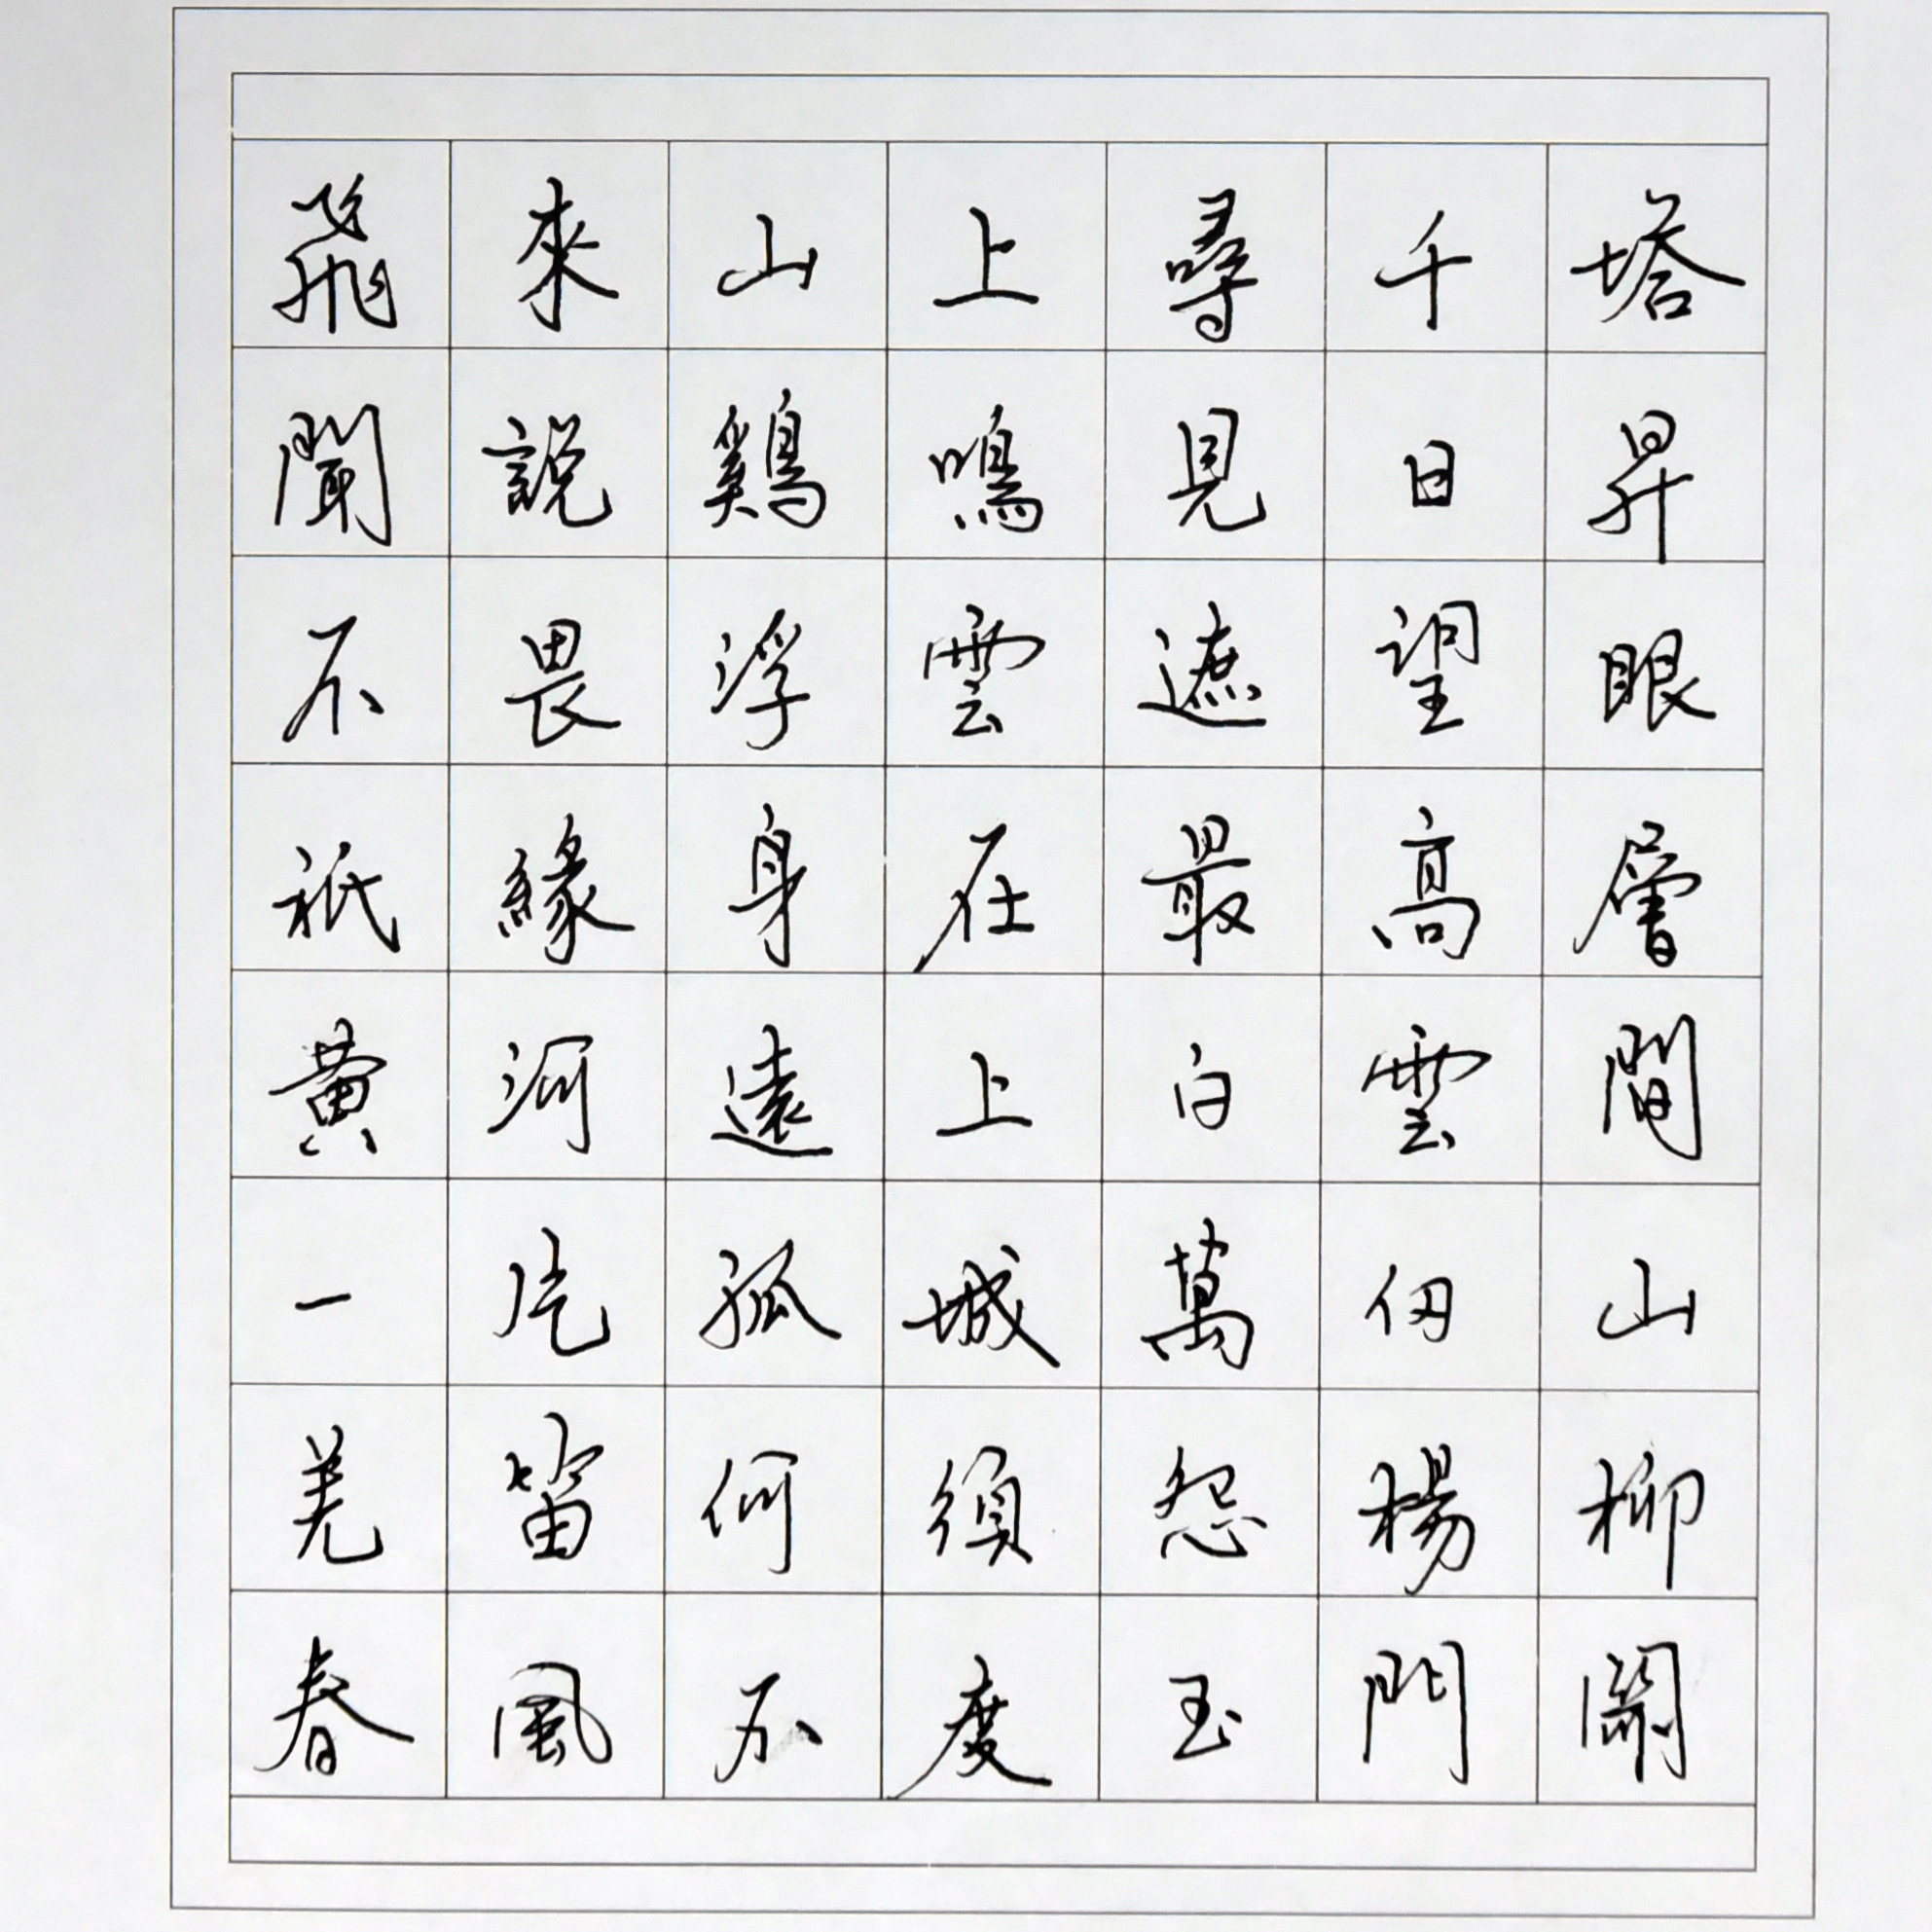 飛來山上尋千塔
聞說鷄鳴見日昇
不畏浮雲遮望眼
祇緣身在最高層
黄河遠上白雲間
一片孤城萬仞山
羌笛何須怨楊柳
春風不度玉門關